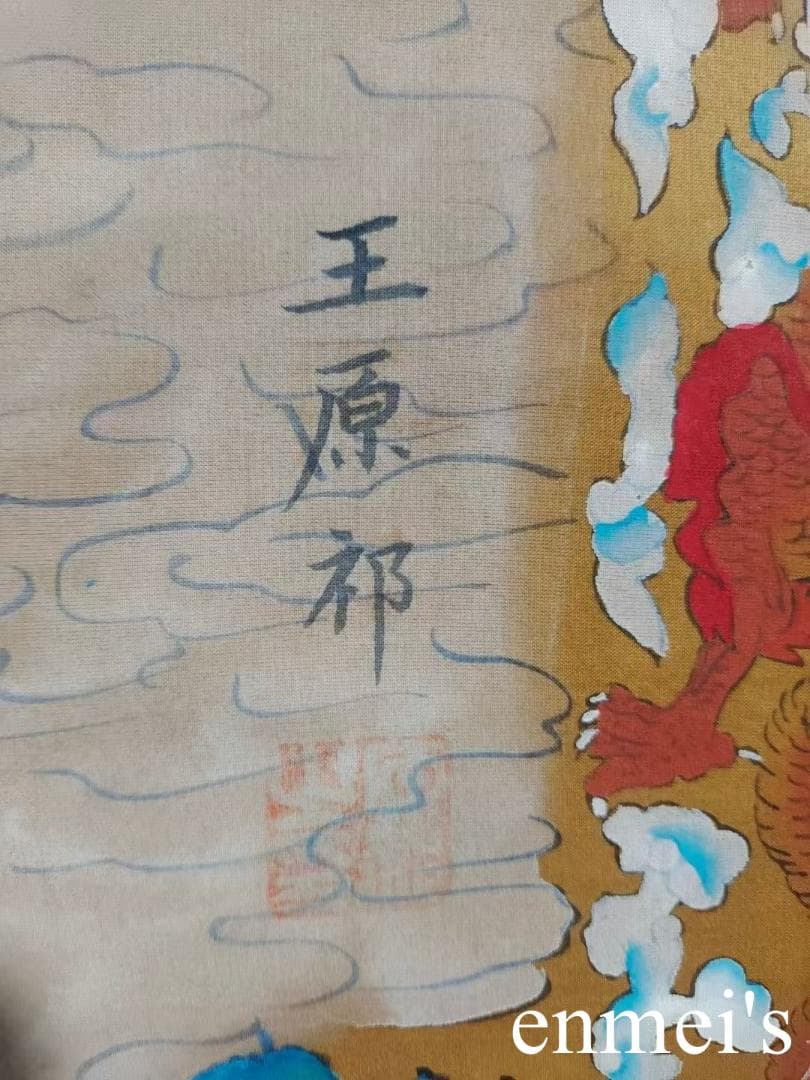 王原祁
enmei's